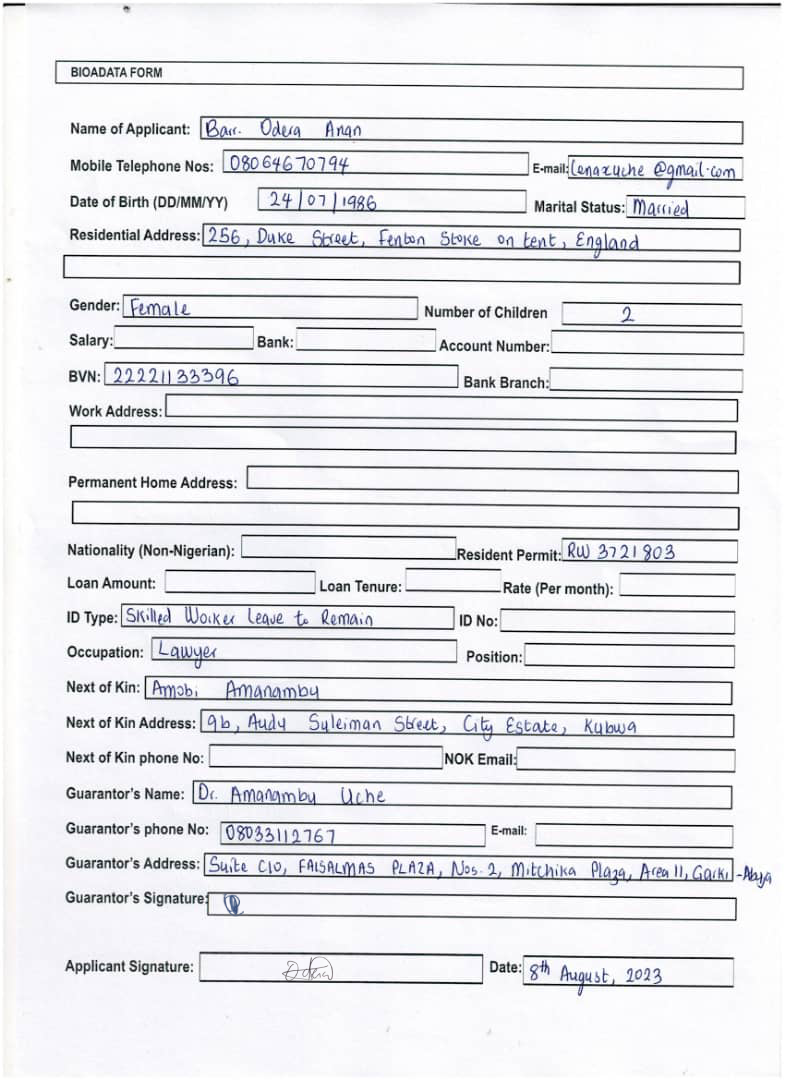 BIOADATA FORM
Name of Applicant: Barr. Odera Anan
Mobile Telephone Nos: 08064670794 E-mail: lenaxuche@gmail.com
Date of Birth (DD/MM/YY) 24/07/1986 Marital Status: Married
Residential Address: 256, Duke Street, Fenton Stoke on tent, England
Gender: Female Number of Children 2
Salary: Bank: Account Number:
BVN: 22221133396 Bank Branch:
Work Address:
Permanent Home Address:
Nationality (Non-Nigerian): Resident Permit: RW 3721803
Loan Amount: Loan Tenure: Rate (Per month):
ID Type: Skilled Worker Leave to Remain ID No:
Occupation: Lawyer Position:
Next of Kin: Amobi Amanambu
Next of Kin Address: 9b, Audu Suleiman Street, City Estate, Kubwa
Next of Kin phone No: NOK Email:
Guarantor's Name: Dr. Amanambu Uche
Guarantor's phone No: 08033112767 E-mail:
Guarantor's Address: Suite C10, FAISALMAS PLAZA, Nos. 2, Mitchika Plaza, Area 11, Garki - Abuja
Guarantor's Signature:
Applicant Signature: Odera Date: 8th August, 2023